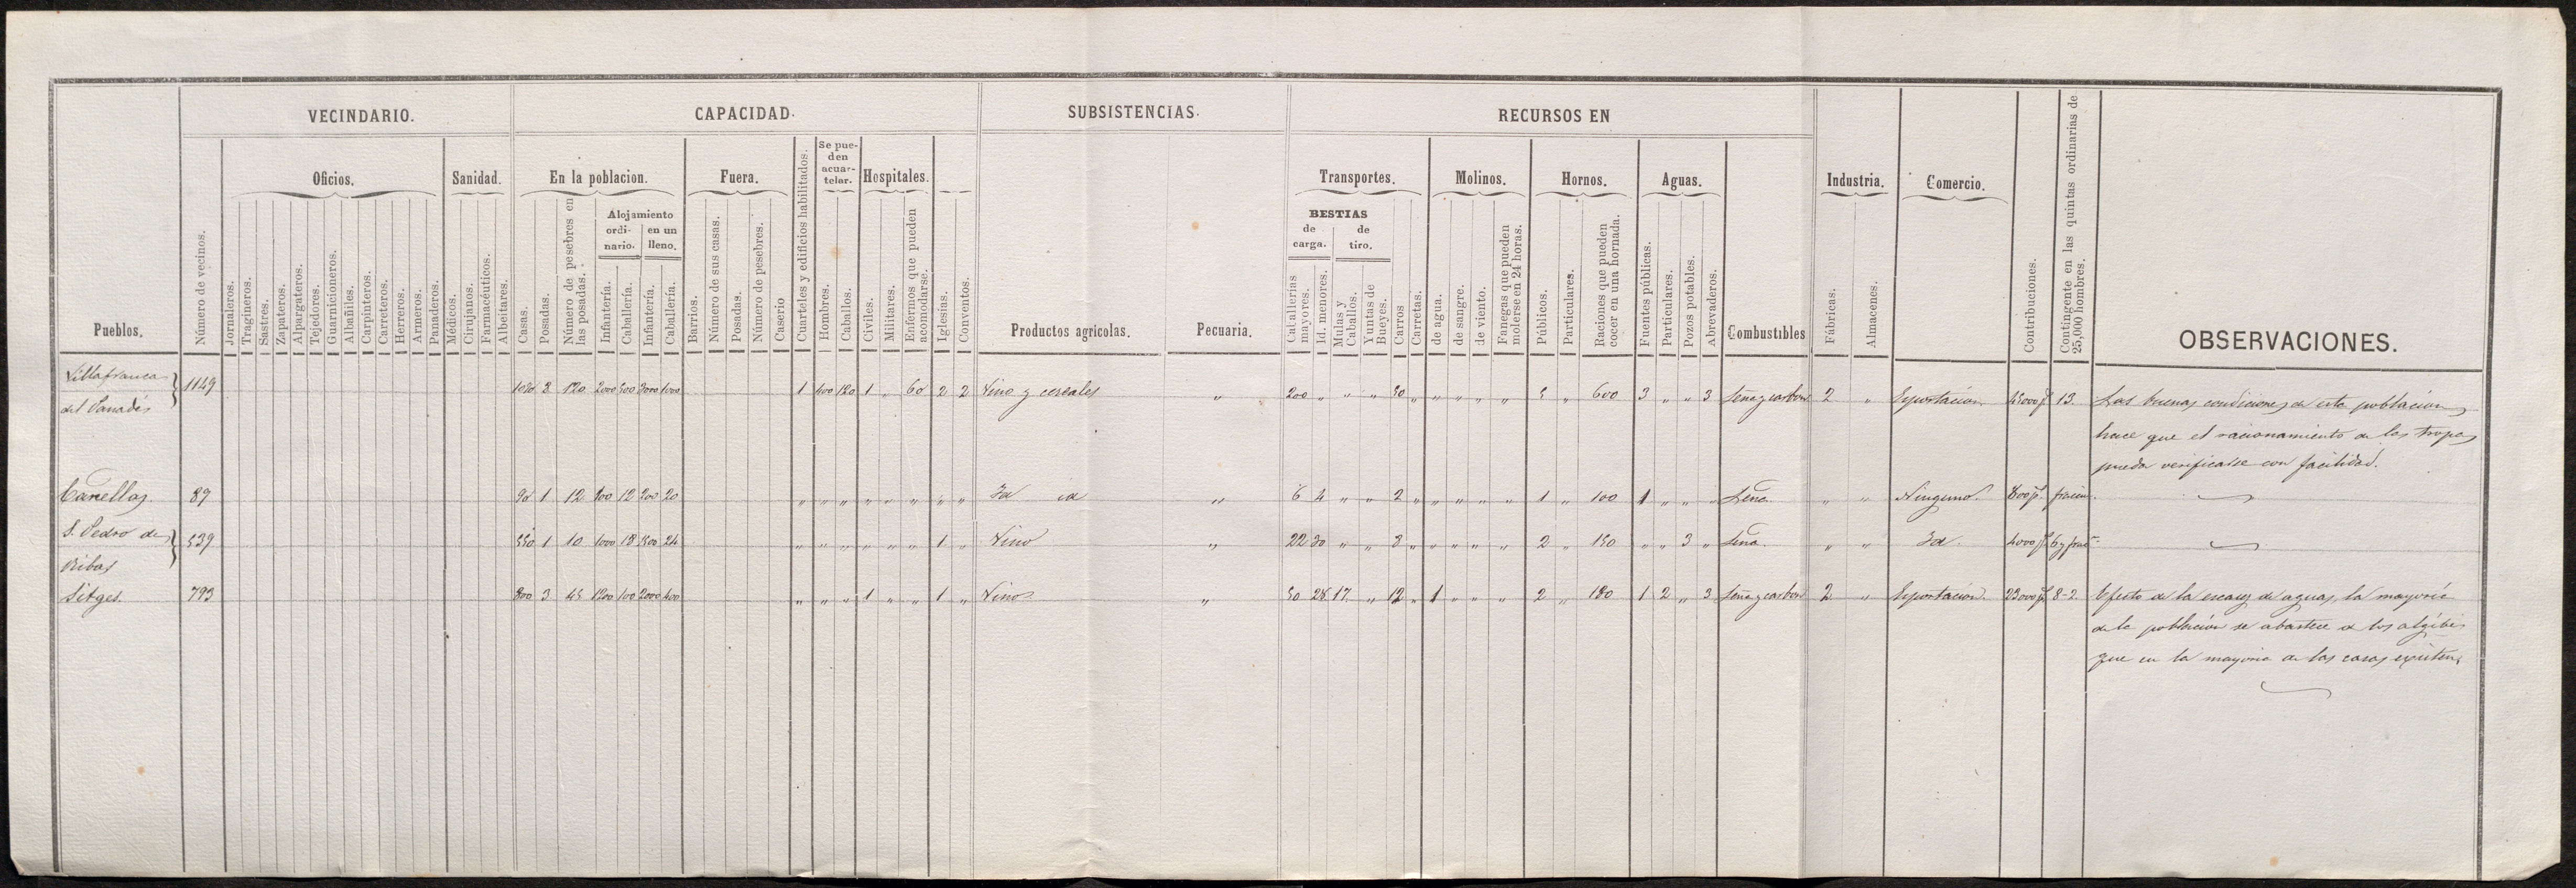 VECINDARIO.
CAPACIDAD.
SUBSISTENCIAS.
RECURSOS EN
Oficios.
Sanidad.
En la poblacion.
Fuera.
Se pue-
den
acuar-
telar.
Hospitales.
Transportes.
Molinos.
Hornos.
Aguas.
Industria.
Comercio.
Alojamiento
ordi-
nario.
en un
lleno.
BESTIAS
de
carga.
de
tiro.
Pueblos.
Número de vecinos.
Jornaleros.
Tragineros.
Sastres.
Zapateros.
Alpargateros.
Tejedores.
Guarnicioneros.
Albañiles.
Carpinteros.
Carreteros.
Herreros.
Armeros.
Panaderos.
Médicos.
Cirujanos.
Farmacéuticos.
Albeitares.
Casas.
Posadas.
Número de pesebres en
las posadas.
Infantería.
Caballería.
Infantería.
Caballería.
Barrios.
Número de sus casas.
Posadas.
Número de pesebres.
Caserio
Cuarteles y edificios habilitados.
Hombres.
Caballos.
Civiles.
Militares.
Enfermos que pueden
acomodarse.
Iglesias.
Conventos.
Productos agricolas.
Pecuaria.
Caballerias
mayores.
Id. menores.
Mulas y
Caballos.
Yuntas de
Bueyes.
Carros
Carretas.
de agua.
de sangre.
de viento.
Fanegas que pueden
molerse en 24 horas.
Públicos.
Particulares.
Raciones que pueden
cocer en una hornada.
Fuentes públicas.
Particulares.
Pozos potables.
Abrevaderos.
Combustibles
Fábricas.
Almacenes.
Contribuciones.
Contingente en las quintas ordinarias de
25,000 hombres.
OBSERVACIONES.
Villafranca
del Panadés
1149 8 120 2000 500 3000 1000 1 400 120 1 „ 60 2 2 Vino y cereales „ 200 „ „ „ 50 „ „ „ „ „ 5 „ 600 3 „ „ 3 Leña y carbon 2 „ Esportacion 13. Las buenas condiciones de esta poblacion
hace que el racionamiento de las tropas
pueda verificarse con facilidad.
Canellas. 89 90 1 12 100 12 200 20 „ „ „ „ „ „ „ „ Id id „ 6 4 „ „ 2 „ „ „ „ „ 1 „ 100 1 „ „ „ Leña. „ „ Ninguno. 800
S. Pedro de
Ribas
539 550 1 10 1000 18 1500 24 „ „ „ „ „ „ 1 „ Vino „ 22 30 „ „ 3 „ „ „ „ „ 2 „ 150 „ „ 3 „ Leña. „ „ Id. 4000
Sitges. 793 800 3 45 1200 100 2000 400 „ „ „ 1 „ „ 1 „ Vino „ 50 28 17 „ 12 „ 1 „ „ „ 2 „ 180 1 2 „ 3 Leña y carbon 2 „ Esportacion. 23000 8-2. Efecto de la escasez de aguas, la mayoría
de la poblacion se abastece de los algibes
que en la mayoria de las casas existen.